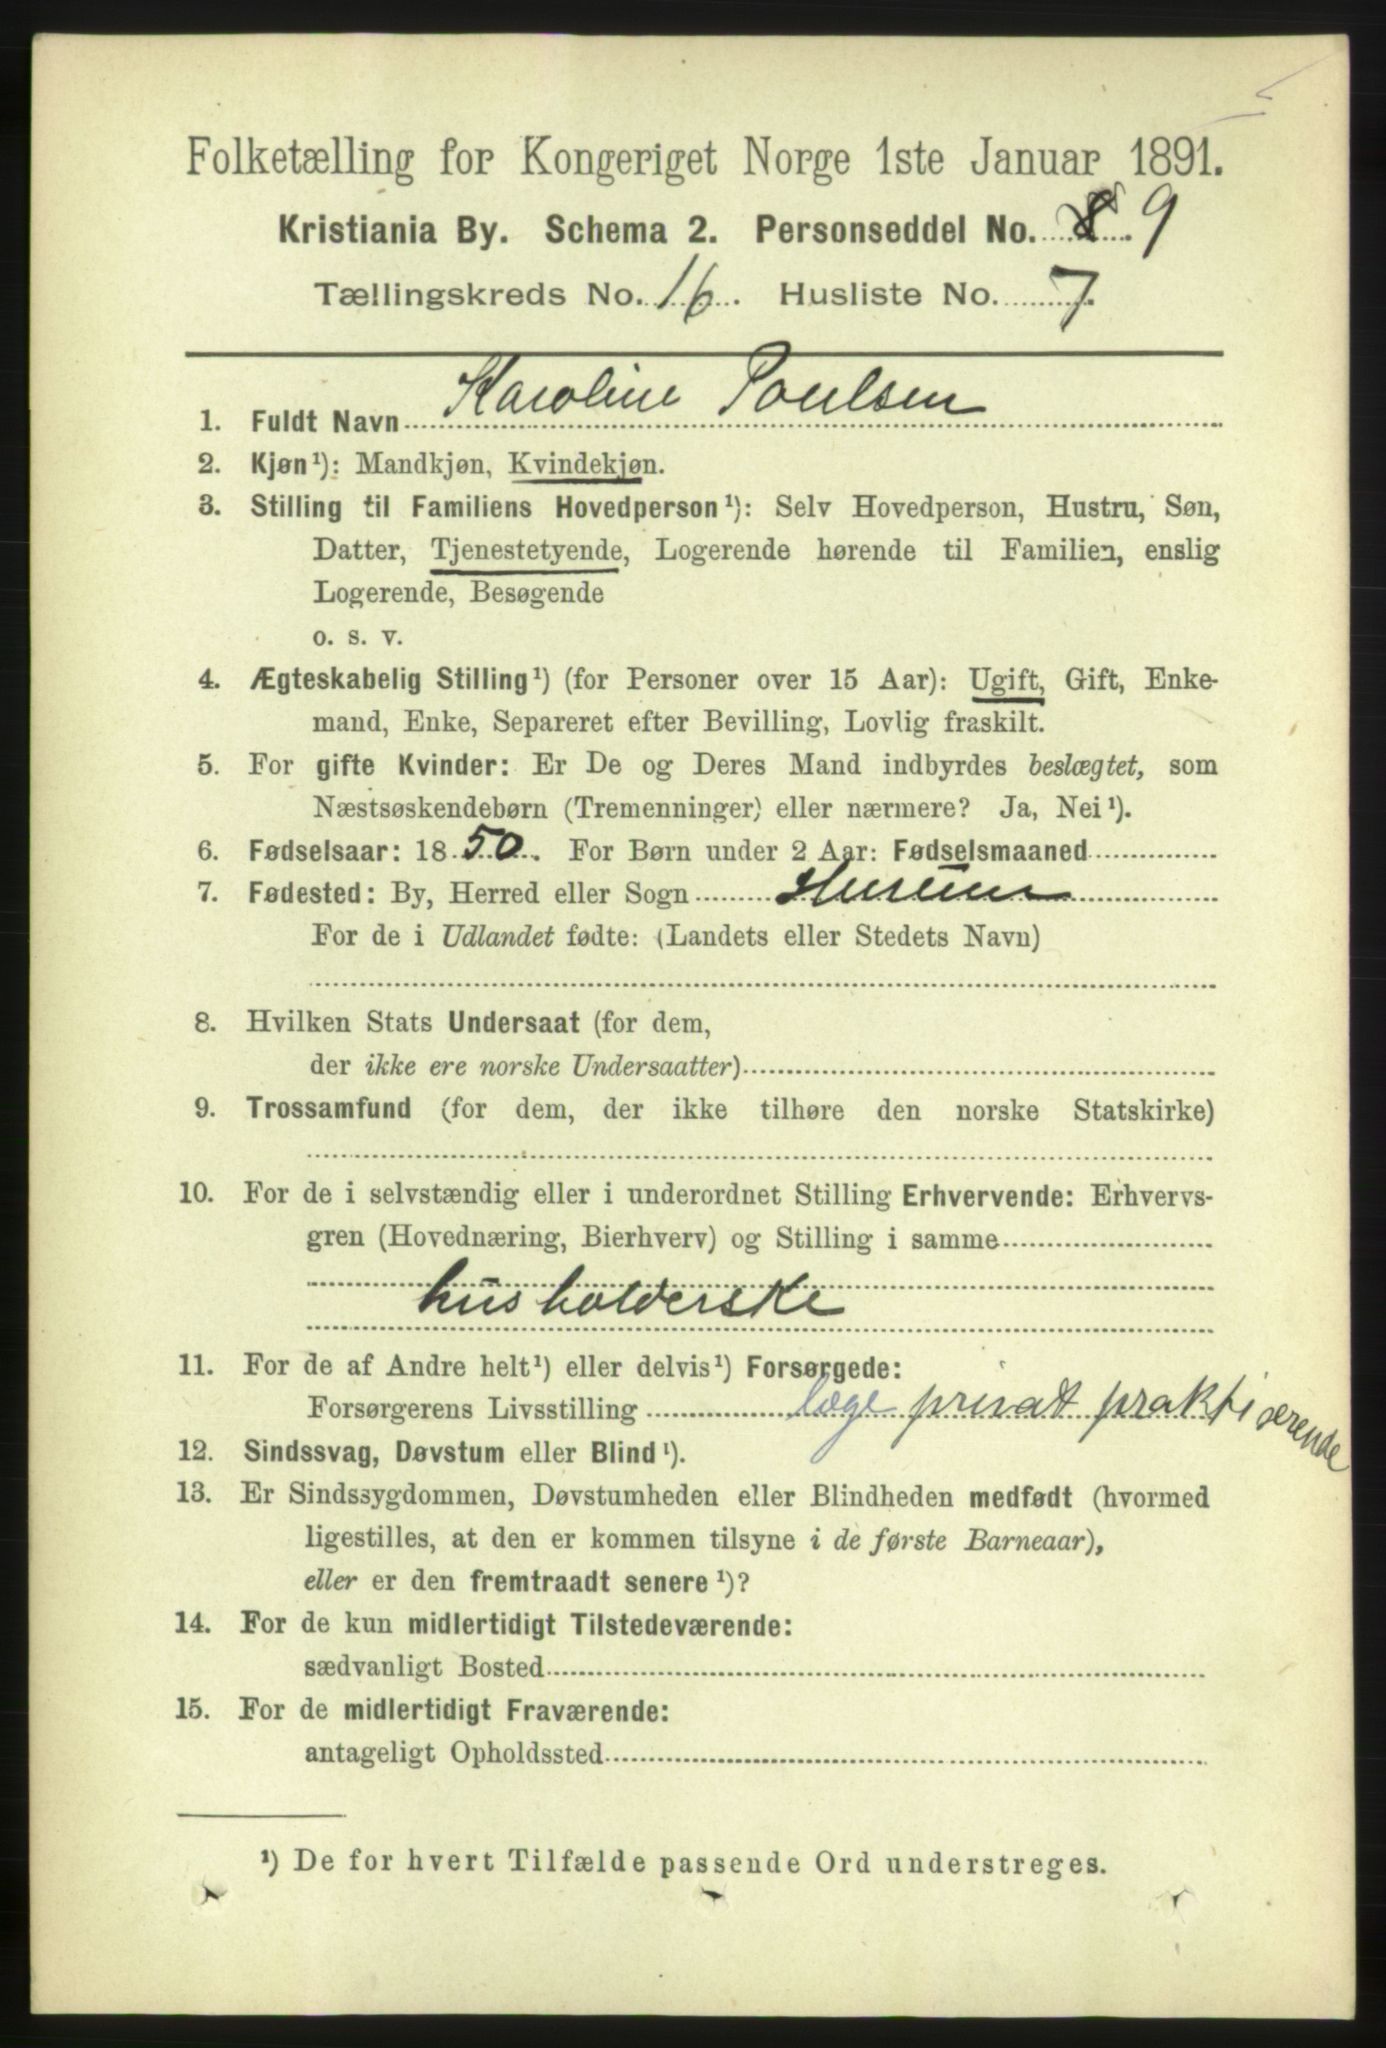 Folketælling for Kongeriget Norge 1ste Januar 1891.
Kristiania By. Schema 2. Personseddel No. 8 9
Tællingskreds No. 16. Husliste No. 7.
1. Fuldt Navn Karoline Poulsen
2. Kjøn¹): Mandkjøn, Kvindekjøn.
3. Stilling til Familiens Hovedperson¹): Selv Hovedperson, Hustru, Søn,
Datter, Tjenestetyende, Logerende hørende til Familien, enslig
Logerende, Besøgende
o. s. v.
4. Ægteskabelig Stilling¹) (for Personer over 15 Aar): Ugift, Gift, Enke-
mand, Enke, Separeret efter Bevilling, Lovlig fraskilt.
5. For gifte Kvinder: Er De og Deres Mand indbyrdes beslægtet, som
Næstsøskendebørn (Tremenninger) eller nærmere? Ja, Nei¹).
6. Fødselsaar: 1850. For Børn under 2 Aar: Fødselsmaaned
7. Fødested: By, Herred eller Sogn Hurum
For de i Udlandet fødte: (Landets eller Stedets Navn)
8. Hvilken Stats Undersaat (for dem,
der ikke ere norske Undersaatter)
9. Trossamfund (for dem, der ikke tilhøre den norske Statskirke)
10. For de i selvstændig eller i underordnet Stilling Erhvervende: Erhvervs-
gren (Hovednæring, Bierhverv) og Stilling i samme
husholderske
11. For de af Andre helt¹) eller delvis¹) Forsørgede:
Forsørgerens Livsstilling læge privat praktiserende
12. Sindssvag, Døvstum eller Blind¹).
13. Er Sindssygdommen, Døvstumheden eller Blindheden medfødt (hvormed
ligestilles, at den er kommen tilsyne i de første Barneaar),
eller er den fremtraadt senere¹)?
14. For de kun midlertidigt Tilstedeværende:
sædvanligt Bosted
15. For de midlertidigt Fraværende:
antageligt Opholdssted
¹) De for hvert Tilfælde passende Ord understreges.